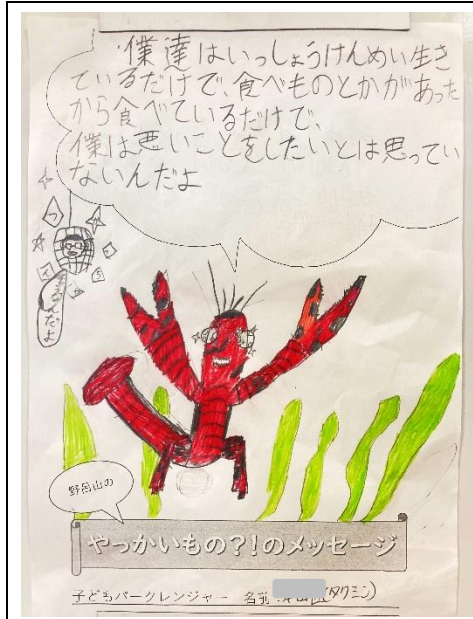 僕達はいっしょうけんめい生き
ているだけで、食べものとかがあった
から食べているだけで、
僕は悪いことをしたいとは思ってい
ないんだよ
野呂山の
やっかいもの?!のメッセージ
子どもパークレンジャー 名前 (タクミン)